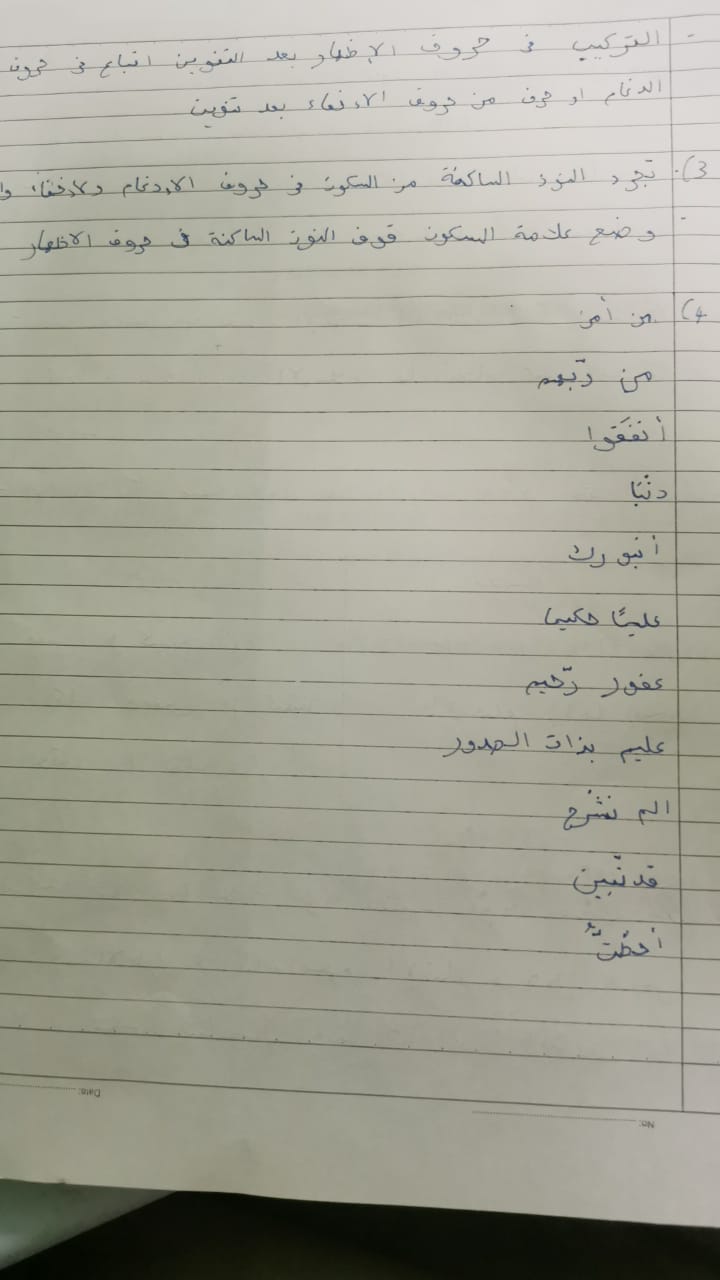 - التركيب في حروف الإظهار بعد التنوين اتباع في حروف
الدغام او حرف من حروف الإخفاء بعد تنوين
3). تجرد النون الساكنة من السكون في حروف الإدغام ولاخفاء وا
- وضع علامة السكون فوق النون الساكنة في حروف الاظهار
4) من أمن
من ربّهم
أنفَقوا
أنبورك
عليمًا حكيما
عفور رّحيم
عليم بذات الصدور
الم نشْرح
قد تّبين
أحطتُ
No:
Date: